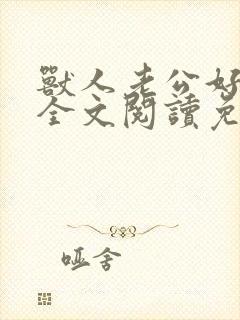 獸人老公好
全文閱讀免
哑舍